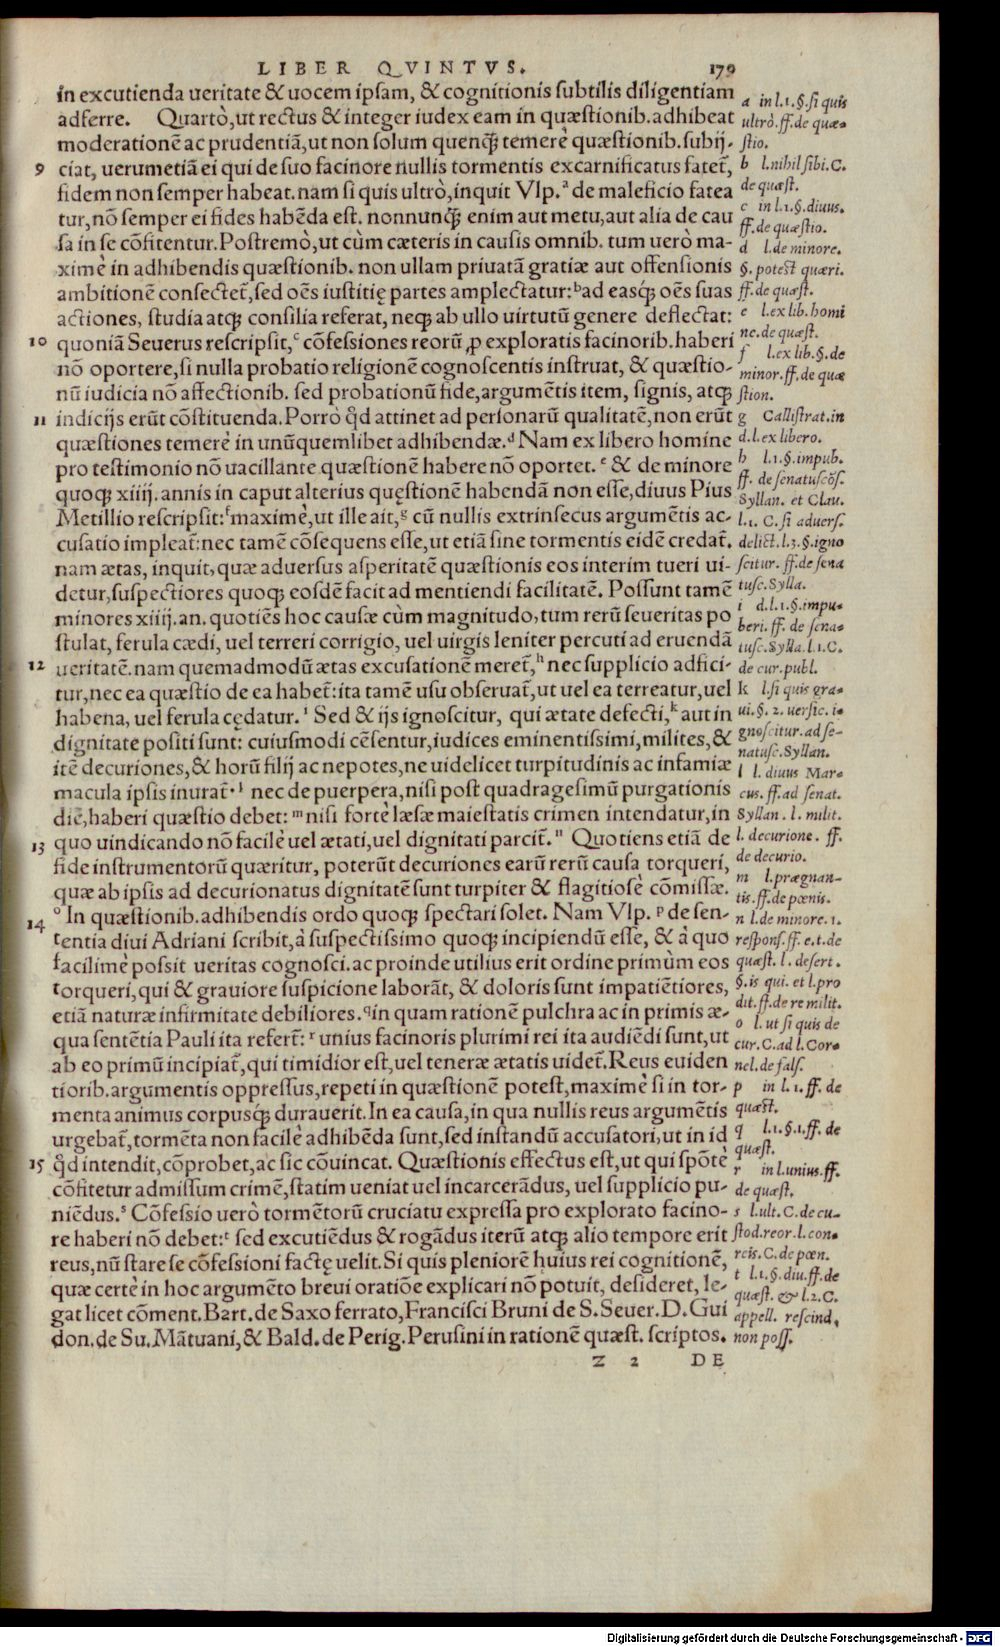 LIBER QVINTVS. 179
in excutienda ueritate & uocem ipsam, & cognitionis subtilis diligentiam
adferre. Quartò, ut rectus & integer iudex eam in quæstionib. adhibeat
moderationē ac prudentiā, ut non solum quenq̄ʒ temerè quæstionib. subij-
9 ciat, uerumetiā ei qui de suo facinore nullis tormentis excarnificatus fatet̄,
fidem non semper habeat. nam si quis ultrò, inquit Vlp.ᵃ de maleficio fatea
tur, nō semper ei fides habēda est. nonnunq̄ʒ enim aut metu, aut alia de cau
sa in se cōfitentur. Postremò, ut cùm cæteris in causis omnib. tum uerò ma-
ximè in adhibendis quæstionib. non ullam priuatā gratiæ aut offensionis
ambitionē consectet̄, sed oēs iustitię partes amplectatur:ᵇ ad easq́ʒ oēs suas
actiones, studia atqʒ consilia referat, neqʒ ab ullo uirtutū genere deflectat:
10 quoniā Seuerus rescripsit,ᶜ cōfessiones reorū ꝓ exploratis facinorib. haberi
nō oportere, si nulla probatio religionē cognoscentis instruat, & quæstio-
nū iudicia nō affectionib. sed probationū fide, argumētis item, signis, atqʒ
11 indicijs erūt cōstituenda. Porrò q̄d attinet ad personarū qualitatē, non erūt
quæstiones temerè in unūquemlibet adhibendæ.ᵈ Nam ex libero homine
pro testimonio nō uacillante quæstionē habere nō oportet.ᵉ & de minore
quoqʒ xiiij. annis in caput alterius quęstionē habendā non esse, diuus Pius
Metillio rescripsit:ᶠ maximè, ut ille ait,ᵍ cū nullis extrinsecus argumētis ac-
cusatio impleat̄: nec tamē cōsequens esse, ut etiā sine tormentis eidē credat̄.
nam ætas, inquit, quæ aduersus asperitatē quæstionis eos interim tueri ui-
detur, suspectiores quoqʒ eosdē facit ad mentiendi facilitatē. Possunt tamē
minores xiiij. an. quotiēs hoc causæ cùm magnitudo, tum rerū seueritas po
stulat, ferula cædi, uel terreri corrigio, uel uirgis leniter percuti ad eruendā
12 ueritatē. nam quemadmodū ætas excusationē meret̄,ʰ nec supplicio adfici-
tur, nec ea quæstio de ea habet̄: ita tamē usu obseruat̄, ut uel ea terreatur, uel
habena, uel ferula cędatur.ⁱ Sed & ijs ignoscitur, qui ætate defecti,ᵏ aut in
dignitate positi sunt: cuiusmodi cēsentur, iudices eminentissimi, milites, &
itē decuriones, & horū filij ac nepotes, ne uidelicet turpitudinis ac infamiæ
macula ipsis inurat̄.ˡ nec de puerpera, nisi post quadragesimū purgationis
diē, haberi quæstio debet:ᵐ nisi fortè læsæ maiestatis crimen intendatur, in
quo uindicando nō facilè uel ætati, uel dignitati parcit̄.ⁿ Quotiens etiā de
13 fide instrumentorū quæritur, poterūt decuriones earū rerū causa torqueri,
quæ ab ipsis ad decurionatus dignitatē sunt turpiter & flagitiosè cōmissæ.
14 ᵒ In quæstionib. adhibendis ordo quoqʒ spectari solet. Nam Vlp.ᵖ de sen-
tentia diui Adriani scribit, à suspectissimo quoqʒ incipiendū esse, & à quo
facilimè possit ueritas cognosci. ac proinde utilius erit ordine primùm eos
torqueri, qui & grauiore suspicione laborāt, & doloris sunt impatiētiores,
etiā naturæ infirmitate debiliores.^q in quam rationē pulchra ac in primis æ-
qua sentētia Pauli ita refert̄:ʳ unius facinoris plurimi rei ita audiēdi sunt, ut
ab eo primū incipiat̄, qui timidior est, uel teneræ ætatis uidet̄. Reus euiden
tiorib. argumentis oppressus, repeti in quæstionē potest, maximè si in tor-
menta animus corpusq́ʒ durauerit. In ea causa, in qua nullis reus argumētis
urgebat̄, tormēta non facilè adhibēda sunt, sed instandū accusatori, ut in id
15 q̄d intendit, cōprobet, ac sic cōuincat. Quæstionis effectus est, ut qui spōtè
cōfitetur admissum crimē, statim ueniat uel incarcerādus, uel supplicio pu-
niēdus.ˢ Cōfessio uerò tormētorū cruciatu expressa pro explorato facino-
re haberi nō debet:ᵗ sed excutiēdus & rogādus iterū atqʒ alio tempore erit
reus, nū stare se cōfessioni factę uelit. Si quis pleniorē huius rei cognitionē,
quæ certè in hoc argumēto breui oratiōe explicari nō potuit, desideret, le-
gat licet cōment. Bart. de Saxo ferrato, Francisci Bruni de S. Seuer. D. Gui
don. de Su. Mātuani, & Bald. de Perig. Perusini in rationē quæst. scriptos.
z 2 DE
a in l.1.§.si quis
ultrò.ff.de quæ-
stio.
b l.nihil sibi.C.
de quæst.
c in l.1.§.diuus.
ff.de quæstio.
d l.de minore.
§. potest quæri.
ff.de quæst.
e l.ex lib. homi
ne.de quæst.
f l.ex lib.§.de
minor.ff.de quæ
stion.
g Callistrat.in
d.l.ex libero.
h l.1.§.impub.
ff. de senatuscōs.
Syllan. et Clau.
l.1. C. si aduers.
delict.l.3.§.igno
scitur. ff.de sena
tusc.Sylla.
i d.l.1.§.impu-
beri.ff. de sena-
tusc.Sylla.l.1.C.
de cur.publ.
k l.si quis gra-
ui.§.2. uersic. i-
gnoscitur.ad se-
natusc.Syllan.
l l. diuus Mar-
cus.ff.ad senat.
Syllan. l. milit.
l. decurione. ff.
de decurio.
m l.prægnan-
tis.ff.de pœnis.
n l.de minore.1.
respons.ff.e.t.de
quæst. l. desert.
§.is qui. et l.pro
dit.ff.de re milit.
o l.ut si quis de
cur.C.ad l.Cor-
nel.de fals.
p in l.1.ff. de
quæst.
q l.1.§.1.ff. de
quæst.
r in l.unius.ff.
de quæst.
s l.ult.C.de cu-
stod.reor.l.con-
reis.C.de pœn.
t l.1.§.diu.ff.de
quæst. & l.2.C.
appell. rescind.
non poss.
Digitalisierung gefördert durch die Deutsche Forschungsgemeinschaft - DFG